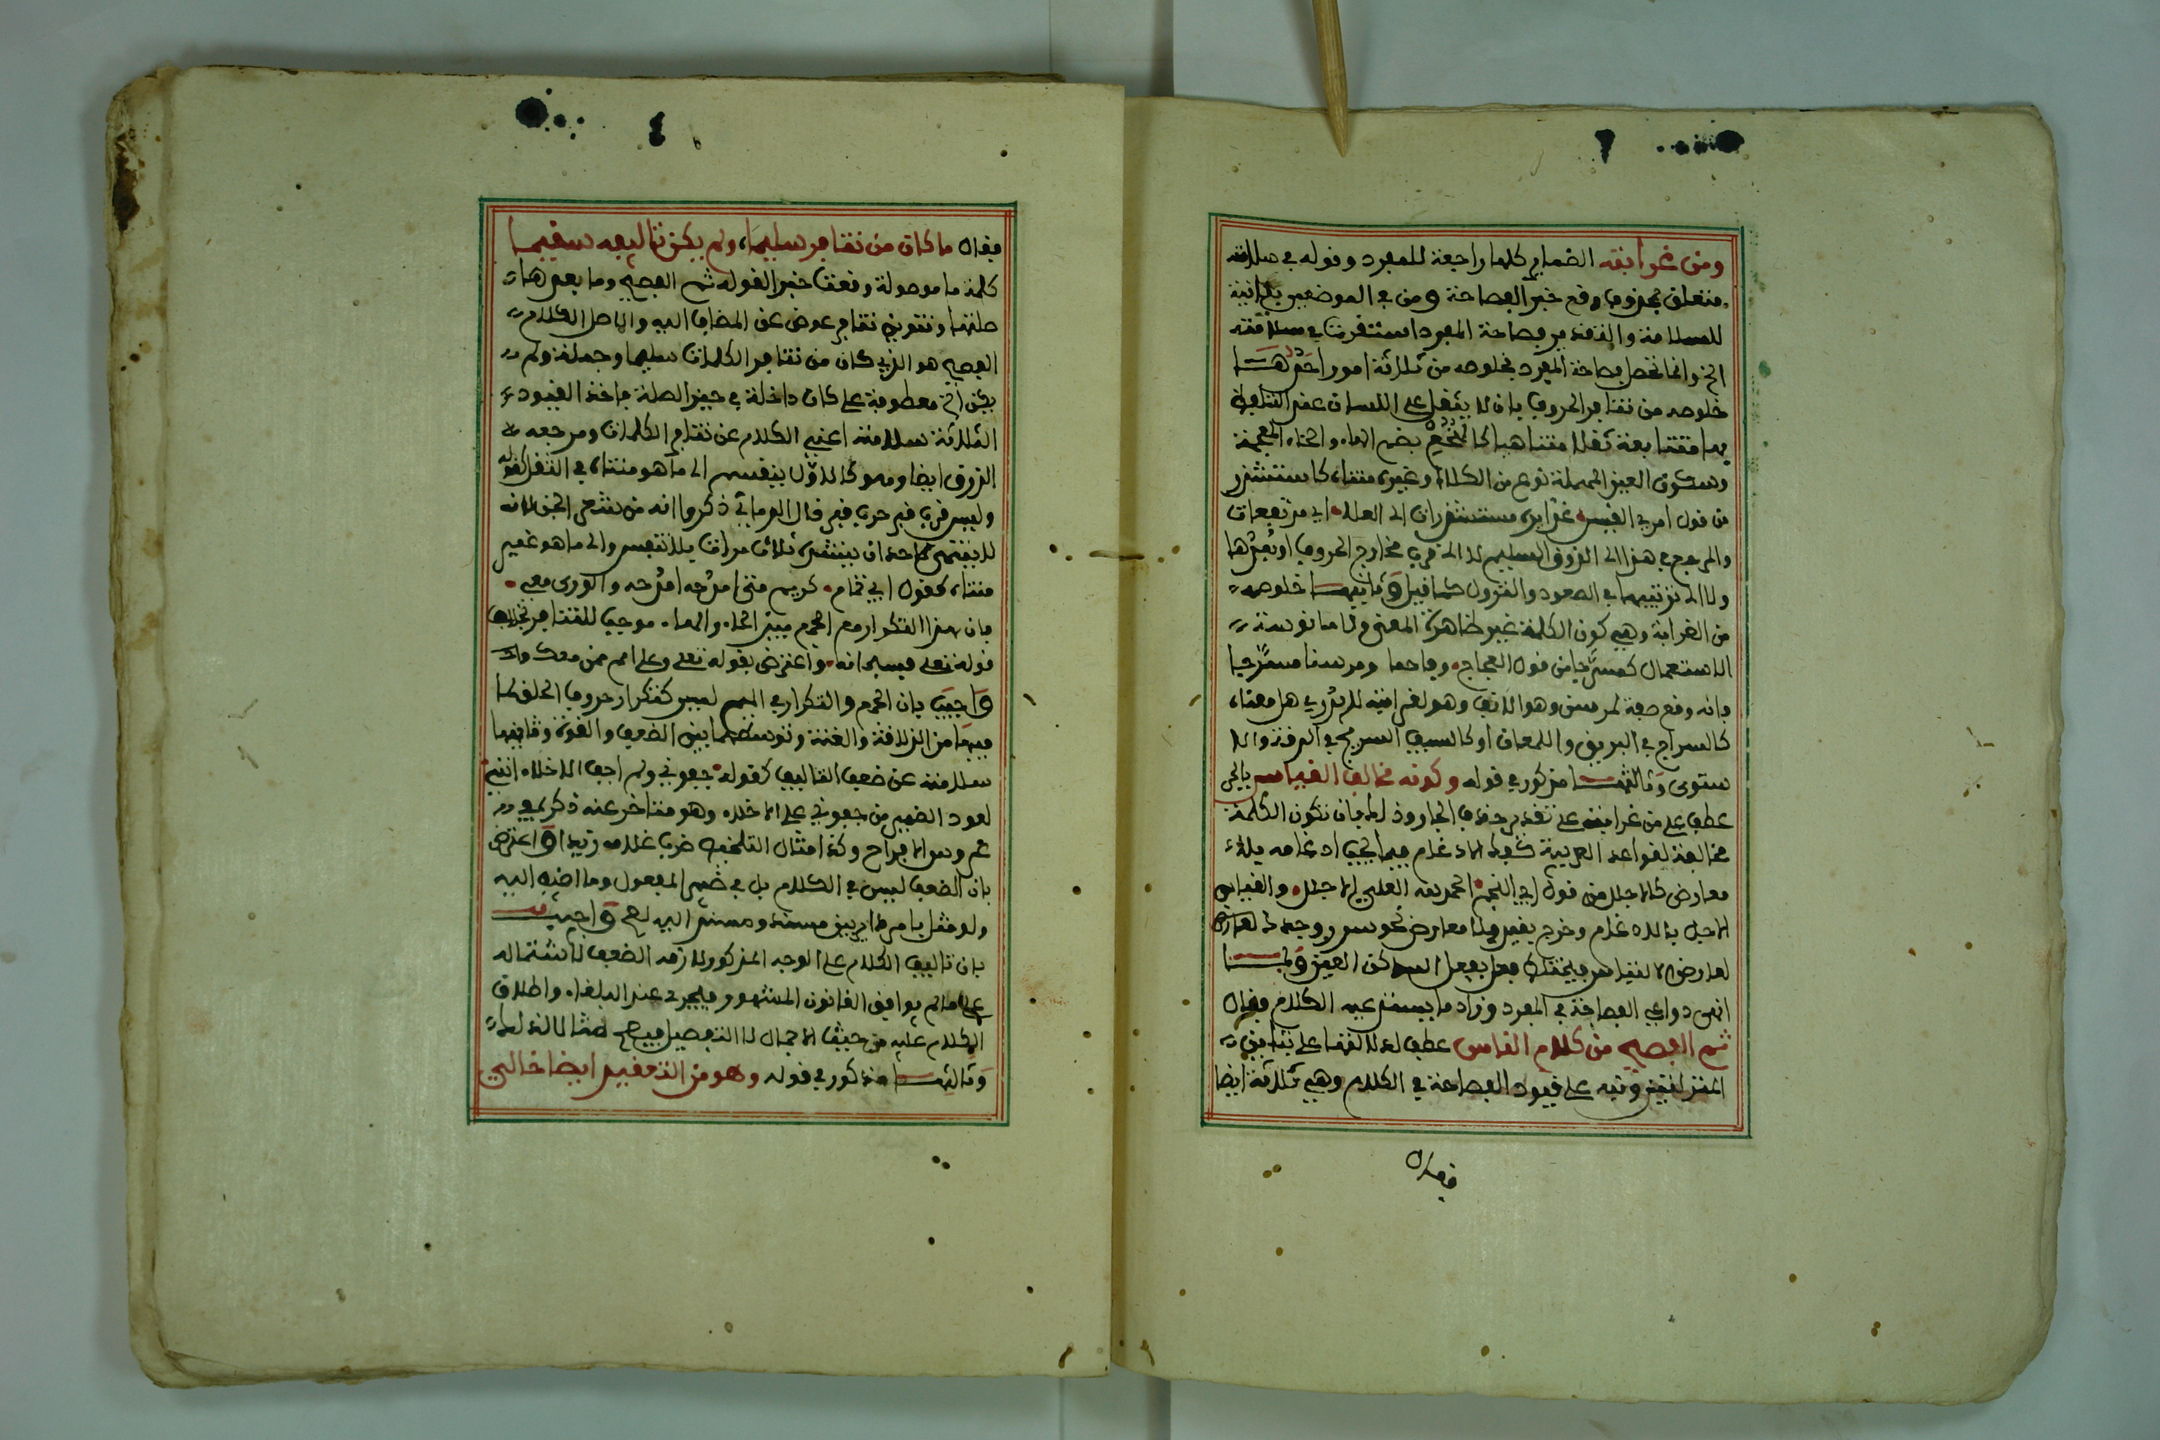 ومن غرابته الضماير كلها راجعة للمفرد وقوله في سلامته
متعلق بمحذوف وقع خبر الفصاحة ومن في الموضعين بيانية
للسلامة والتقدير فصاحة المفرد استقرت في سلامته
الخ وانما تحصل فصاحة المفرد بخلوصه من ثلاثة امور احدها
خلوصه من تنافر الحروف بان لا يثقل على اللسان عند التلفظ
بها متتابعة ثقلا متناهيا كالهعخع بضم الهاء والخاء المعجمة
وسكون العين المهملة نوع من الكلاء وغير متناه كمستشزر
من قول امرئ القيس غدايره مستشزرات الى العلا اي مرتفعات
والمرجع في هذا الى الذوق السليم لا الى قرب مخارج الحروف او بعدها
ولا الى ترتيبها في الصعود والنزول كما قيل وثانيها خلوصه
من الغرابة وهي كون الكلمة غير ظاهرة المعنى ولا مانوسة
الاستعمال كمسرجا من قول العجاج وفاحما ومرسنا مسرجا
فانه وقع صفة لمرسن وهو الانف وهو لغرابته لم يدر هل معناه
كالسراج في البريق واللمعان او كالسيف السريجي في الدقة والا
ستوى وثالثها مذكور في قوله وكونه مخالف القياس بالجر
عطف على من غرابته على تقدير حذف الجار وذلك بان تكون الكلمة
مخالفة لقواعد العربية كفك الادغام فيما يجب ادغامه بلا
معارض كالاجلل من قول ابي النجم الحمد لله العلي الاجلل والقياس
الاجل بالادغام وخرج بقيد بلا معارض نحو سرر وجدد
لعارض الالتباس فيحفظ كفعل بفعل الساكن العين ولما
انهى دواعي الفصاحة في المفرد وزاد ما يستدعيه الكلام فقال
ثم الفصيح من كلام الناس عطف الالفها على تباين
المنزلتين ونبه على قيود الفصاحة في الكلام وهي ثلاثة ايضا
فقال
فقال ما كان من تنافر سليما، ولم يكن تاليفه سقيما
كلمة ما موصولة وقعت خبر القوله ثم الفصيح وما بعدها
صلتها وتنوين تنافر عوض عن المضاف اليه والاصل الكلام
الفصيح هو الذي كان من تنافر الكلمات سليما وجملة ولم
يكن الخ معطوفة على كان داخلة في حيز الصلة فاحد القيود
الثلاثة سلامته اعني الكلام عن تنافر الكلمات ومرجعه
الذوق ايضا وهو كالاول ينقسم الى ما هو متناه في الثقل كقوله
وليس قرب قبر حرب قبر قال الرماني ذكروا انه من شعر الجن لانه
لا يتهيا لاحد ان ينشده ثلاث مرات بلا تنفس والى ما هو غير
متناه كقول ابي تمام كريم متى امدحه امدحه والورى معي
فان هذا التكرار مع الجمع بين الحاء والهاء موجب للتنافر
قوله تعلى فسبحانه واعترض بقوله تعلى وعلى امم ممن معك
واجيب بان الجمع والتكرار في الميم ليس كتكرار حروف الحلق لما
فيها من الذلاقة والغنة وتوسطها بين الضعف والقوة وثانيها
سلامته عن ضعف التاليف كقوله جفوني ولم اجف الاخلاء انني
لعود الضمير من جفوني على الاخلاء وهو متاخر عنه ذكره في
عروس الافراح وكذا مثال التلخيص ضرب غلامه زيدا واعترض
بان الضعف ليس في الكلام بل في ضمير المفعول وما اضيف اليه
ولو مثل بامر دائر بين مسند ومسند اليه لصح واجيب
بان تاليف الكلام على الوجه المذكور لازمه الضعف لاشتماله
على ما لم يوافق القانون المشهور فيجرى عند البلغاء واطلاق
الكلام عليه من حيث الاجمال لا التفصيل فيصح
وثالثها مذكور في قوله وهو من التعقيد ايضا خالي